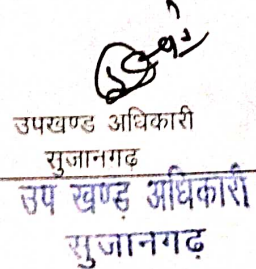 उपखण्ड अधिकारी
सुजानगढ़
उप खण्ड़ अधिकारी
सुजानगढ़